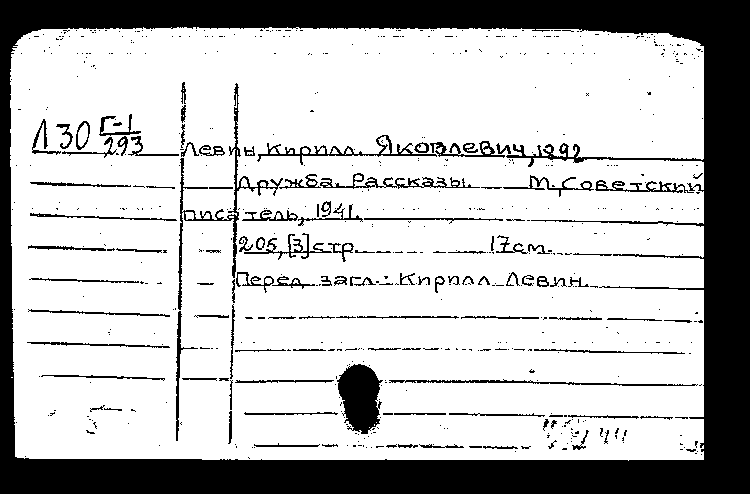 Л30 Г-1
293
Левин, Кирилл. Яковлевич, 1892
Дружба. Рассказы. М., Советский
писатель, 1941.
205, [3] стр. 17 см.
Перед загл.: Кирилл Левин.
5